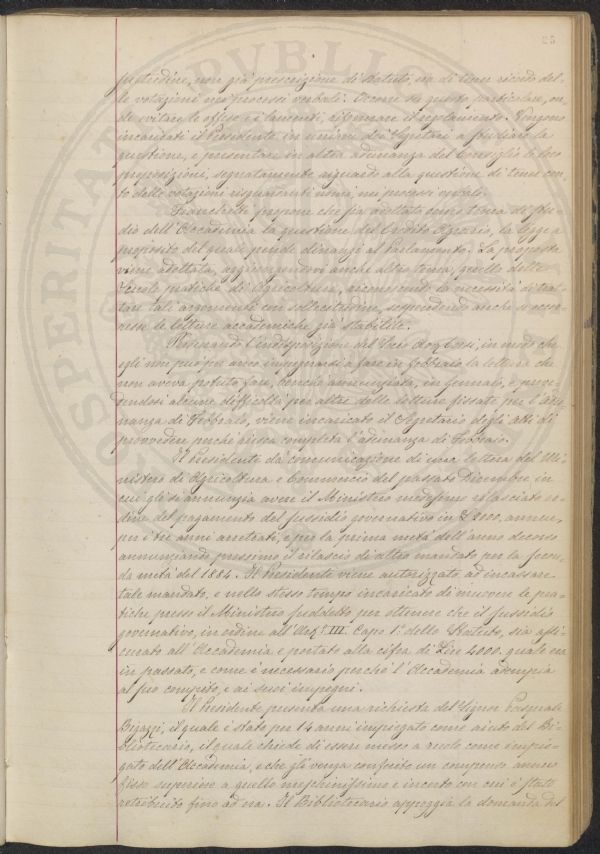 25
PROSPERITATI PVBLICAE
consuetudine, non già prescrizione di Statuto, sia di tener ricordo del-
le votazioni nei processi verbali. Occorre su questo particolare, on-
de evitare le offese e i lamenti, riformare il regolamento. Vengono
incaricati il Presidente in unione dei Segretari a studiare la
questione, e presentare in altra adunanza del Consiglio le loro
proposizioni, segnatamente riguardo alla questione di tener con-
to delle votazioni risguardanti nomi, nei processi verbali.
Franchetti propone che sia adottata come tema di stu-
dio dell'Accademia la questione del Credito Agrario, la legge a
proposito del quale pende dinanzi al Parlamento. La proposta
viene adottata, aggiungendovi anche altro tema, quello delle
Scuole pratiche di Agricoltura, riconoscendo la necessità di trat-
tare tali argomenti con sollecitudine, sospendendo anche se occor-
resse le letture accademiche già stabilite.
Ritenendo l'indisposizione del Socio in modo che
egli non può per anco impegnarsi a fare in Febbraio la lettura che
non aveva potuto fare, benchè annunziata, in Gennaio, e preve-
dendosi alcune difficoltà per altre delle letture fissate per l'adu-
nanza di Febbraio, viene incaricato il Segretario degli Atti di
provvedere perchè riesca completa l'adunanza di Febbraio.
Il Presidente dà comunicazione di una lettera del Mi-
nistero di Agricoltura e Commercio del passato Dicembre in
cui gli si annunzia avere il Ministero medesimo rilasciato or-
dine del pagamento del sussidio governativo in £ 2000. annue,
per i tre anni arretrati, e per la prima metà dell'anno decorso
annunziando prossimo il rilascio di altro mandato per la secon-
da metà del 1884. Il Presidente viene autorizzato ad incassare
tale mandato, e nello stesso tempo incaricato di muovere le pra-
tiche presso il Ministero suddetto per ottenere che il sussidio
governativo, in ordine all'Art.º III. Capo 1.º dello Statuto, sia assi-
curato all'Accademia e portato alla cifra di Lire 4000. quale era
in passato, e come è necessario perchè l'Accademia adempia
al suo compito, e ai suoi impegni.
Il Presidente presenta una richiesta del Signor Pasquale
Bigazzi, il quale è stato per 14 anni impiegato come aiuto del Bi-
bliotecario, il quale chiede di essere messo a ruolo come impie-
gato dell'Accademia, e che gli venga conferito un compenso annuo
fisso superiore a quello meschinissimo e incerto con cui è stato
retribuito fino ad ora. Il Bibliotecario appoggia la domanda del